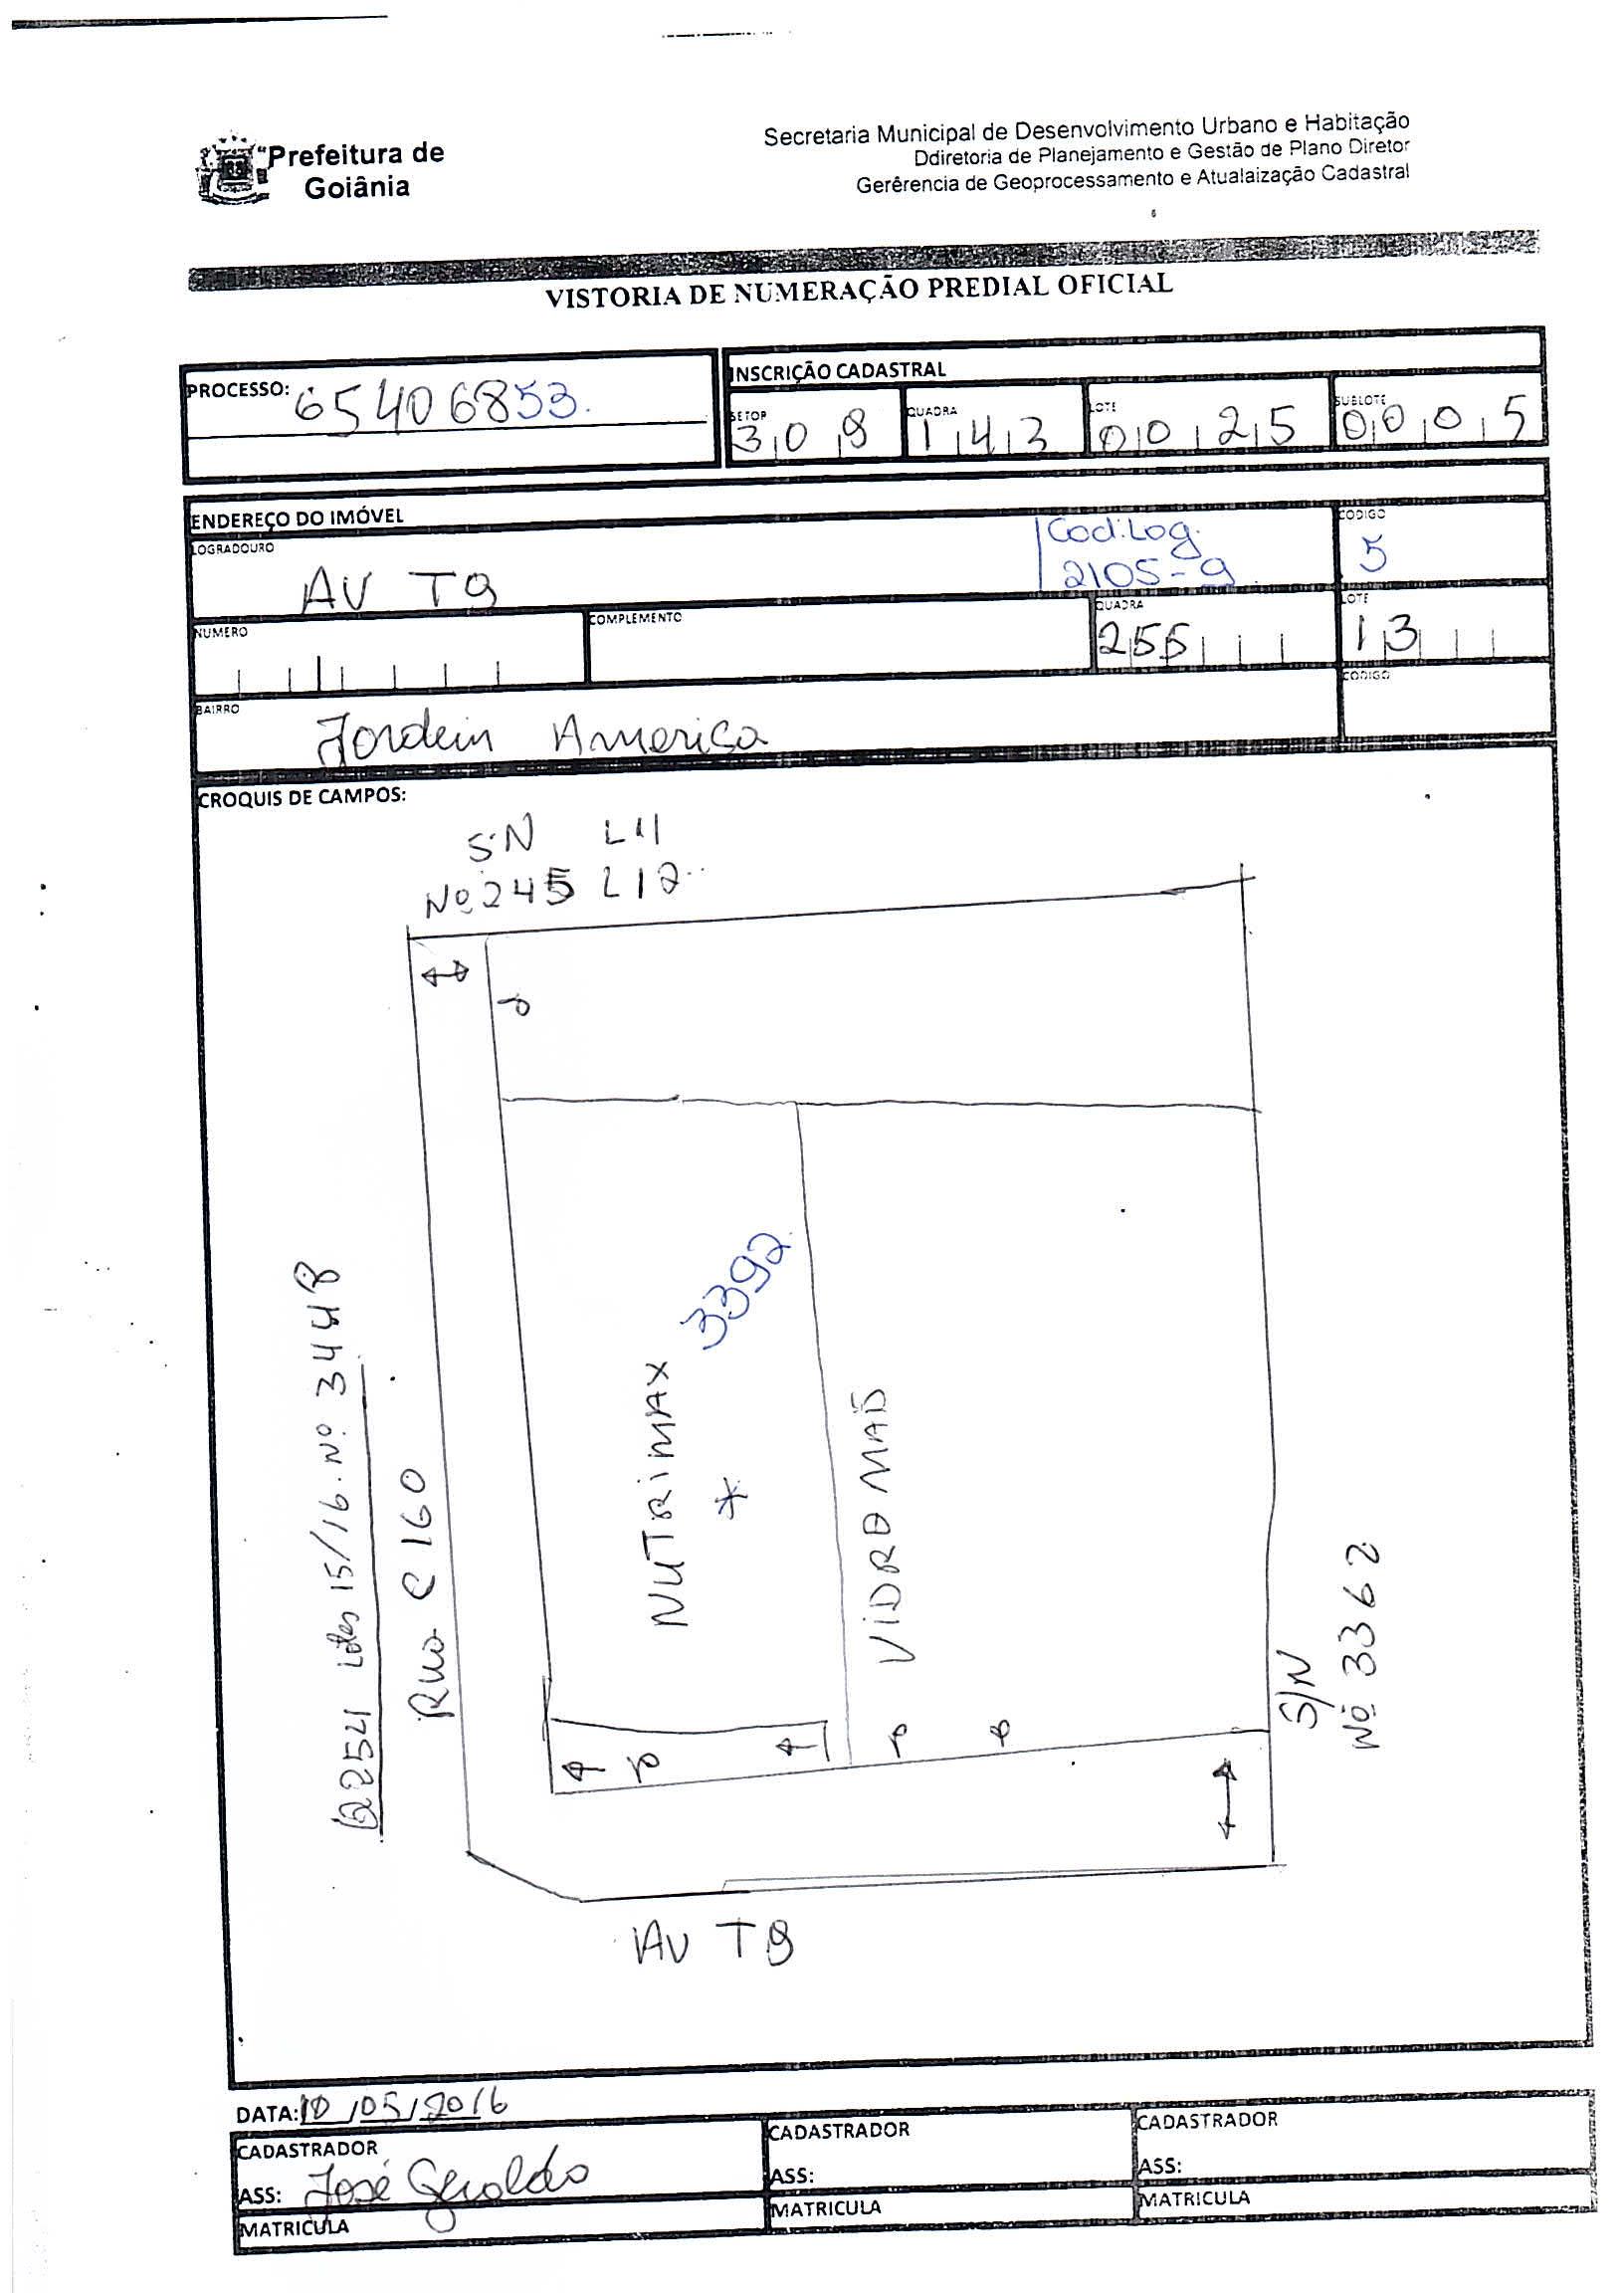 Prefeitura de
Goiânia
Secretaria Municipal de Desenvolvimento Urbano e Habitação
Ddiretoria de Planejamento e Gestão de Plano Diretor
Gerêrencia de Geoprocessamento e Atualaização Cadastral
VISTORIA DE NUMERAÇÃO PREDIAL OFICIAL
PROCESSO: 65406853.
INSCRIÇÃO CADASTRAL
SETOR QUADRA LOTE SUBLOTE
309 143 0025 0005
ENDEREÇO DO IMÓVEL
LOGRADOURO
AV T9
Cod.Log.
2105-9
CODIGO
5
NUMERO
COMPLEMENTO
QUADRA
255
LOTE
13
BAIRRO
Jordein America
CODIGO
CROQUIS DE CAMPOS:
S.N L11
Nº 245 L12
3392
NUTRIMAX
*
VIDRO MAIS
Q254 Lotes 15/16. Nº 3448
Rua C 160
S/N
Nº 3362
AV T9
DATA: 10/05/2016
CADASTRADOR
ASS: José Geraldo
MATRICULA
CADASTRADOR
ASS:
MATRICULA
CADASTRADOR
ASS:
MATRICULA